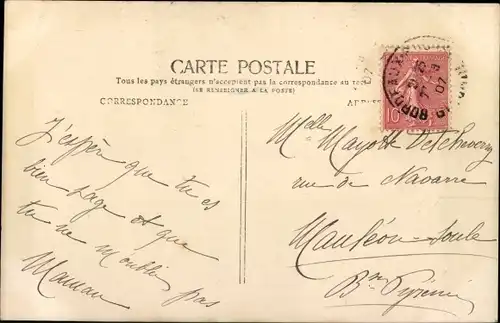 CARTE POSTALE
Tous les pays étrangers n'acceptent pas la correspondance au
(SE RENSEIGNER A LA POSTE)
CORRESPONDANCE
10
BORDEAUX
07
J'espère que tu es
bien sage et que
tu ne m'oublie pas
Maman
Melle Mayotte Detcheverry
rue de Navarre
Mauléon-Soule
Bses Pyrénées